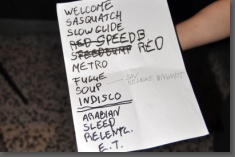 WELCOME
SASQUATCH
SLOW GLIDE
RED SPEEDB
SPEEDBUMP RED
METRO
FUGUE
SOUP
INDISCO
ARABIAN
SLEED
RELENTL.
E.T.